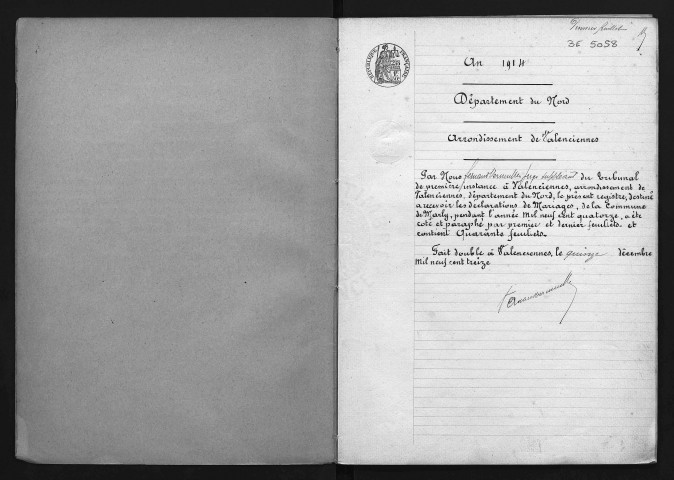 Premier feuillet
3E 5058
An 1914
Département du Nord
Arrondissement de Valenciennes
Par Nous juge suppléant du Tribunal
de première instance à Valenciennes, arrondissement de
Valenciennes, département du Nord, le présent registre, destiné
à recevoir les déclarations de Mariages, de la Commune
de Marly, pendant l'année Mil neuf cent quatorze, a été
coté et paraphé par premier et dernier feuillets et
contient Quarante feuillets.
Fait double à Valenciennes, le quinze décembre
Mil neuf cent treize